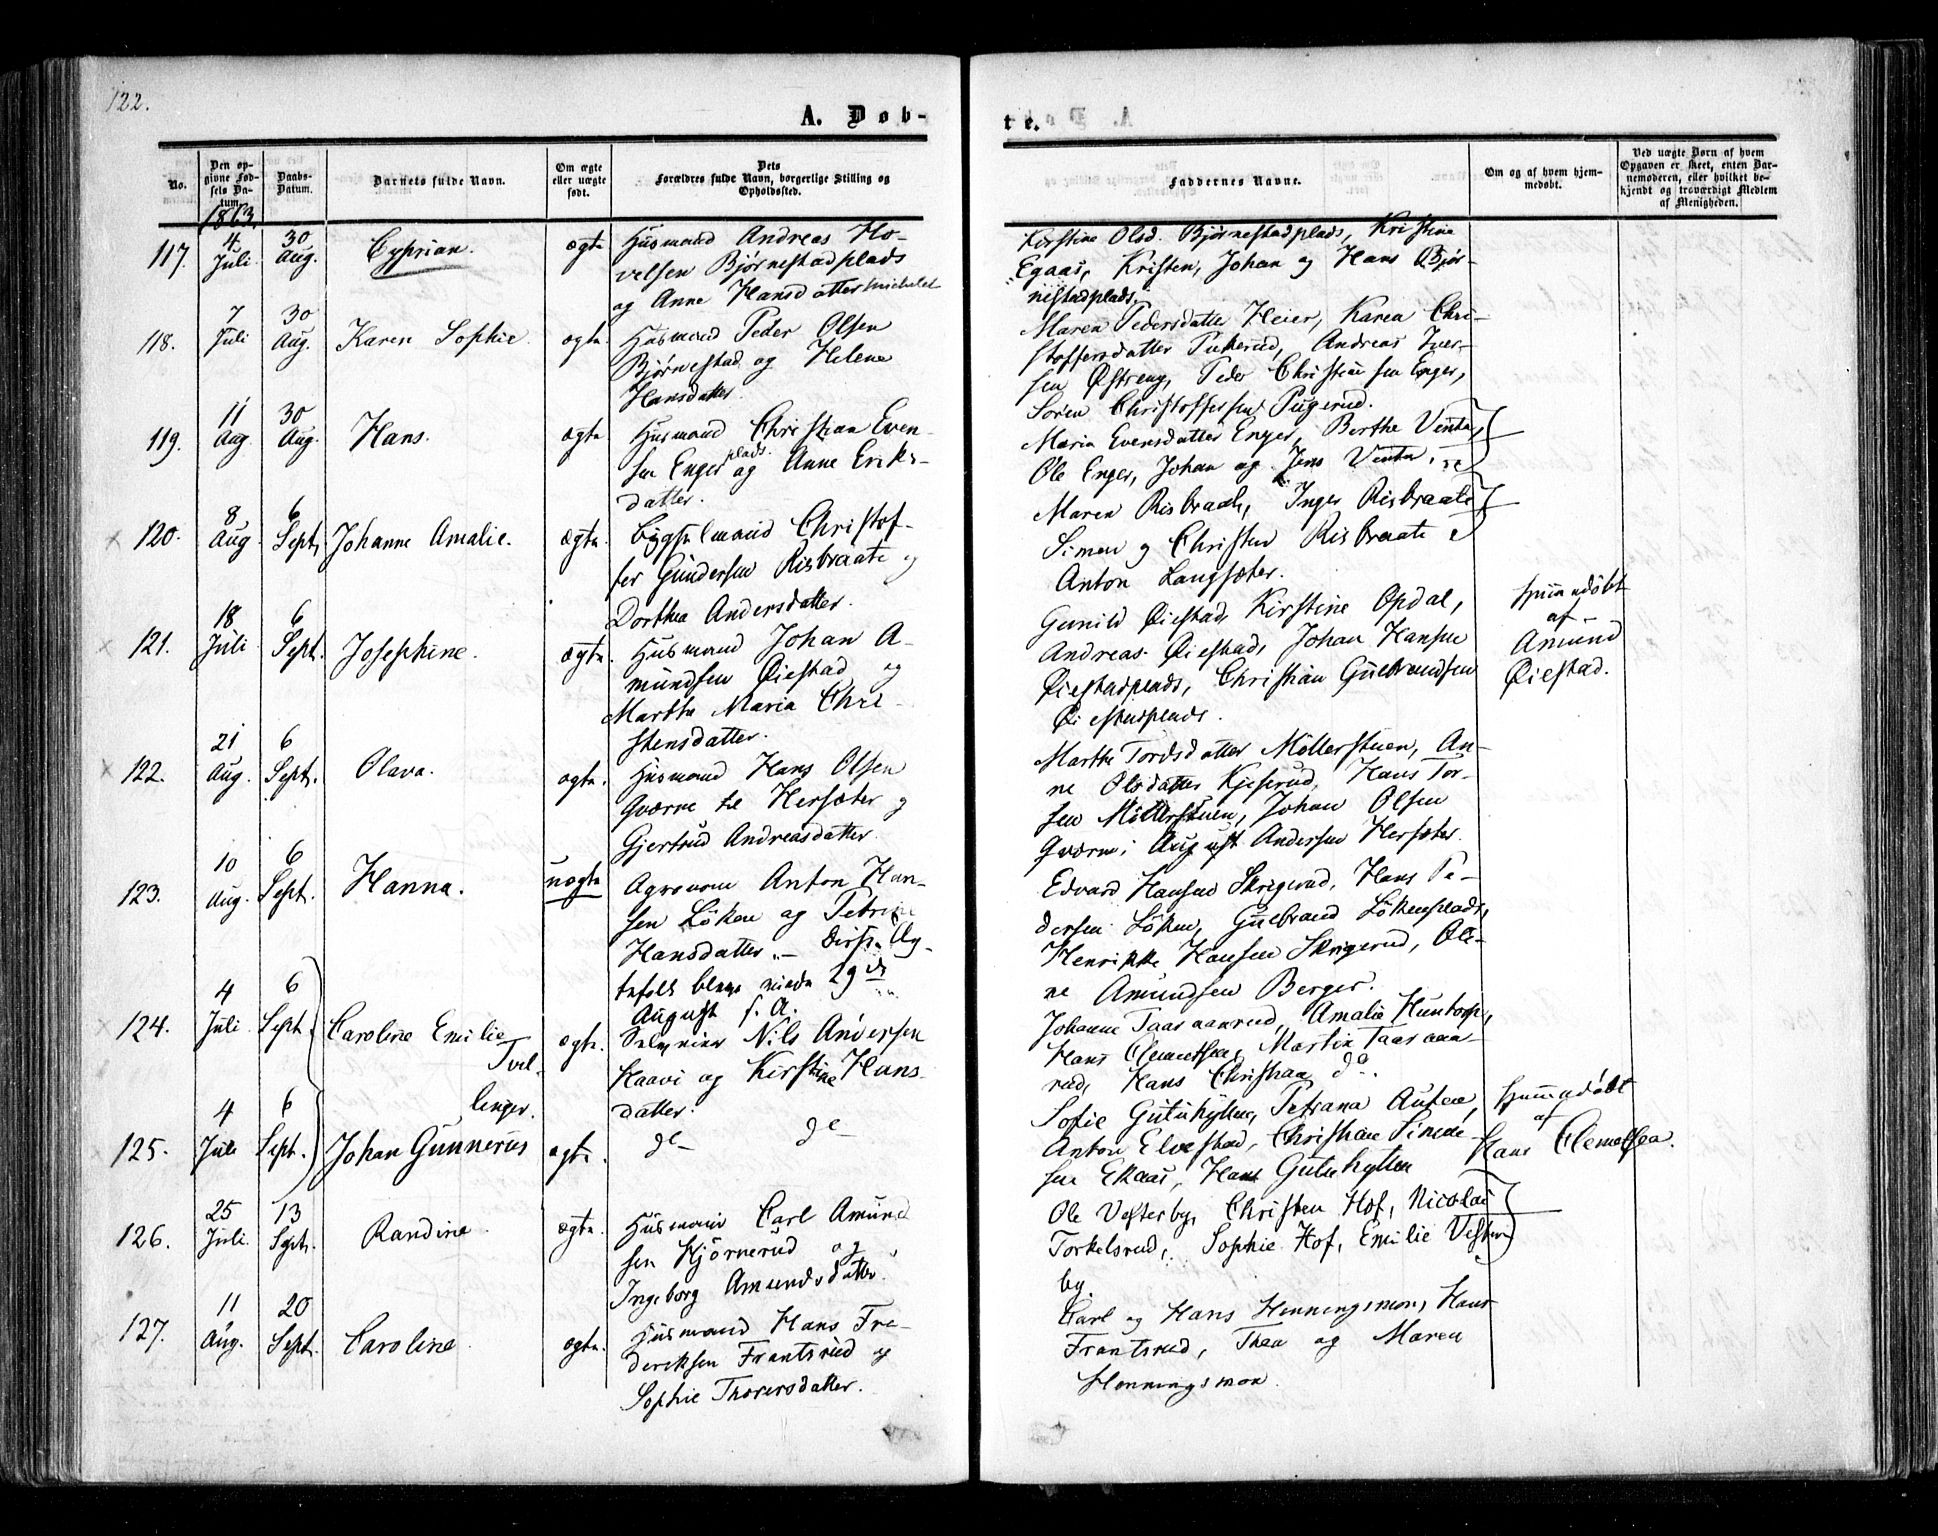 122.
A. Døb-
te.
No.
Den op-
givne Fød-
sels Da-
tum.
Daabs-
Datum.
Barnets fulde Navn.
Om ægte
eller uægte
født.
Dets
Forældres fulde Navn, borgerlige Stilling og
Opholdssted.
Faddernes Navne.
Om og af hvem hjem-
medøbt.
Ved uægte Børn af hvem
Opgaven er skeet, enten Bar-
nemoderen, eller hvilket be-
kjendt og troværdigt Medlem
af Menigheden.
1863.
117.
4
Juli
30
Aug.
Cyprian.
ægte
Husmand Andreas Ho-
velsen Bjørnestadplads
og Anne Hansdatter
Kirstine Olsd. Bjørnestadplads, Kristine
Egaas, Kristen, Johan og Hans Bjør-
nestadplads.
118.
7
Juli
30
Aug.
Karen Sophie.
ægte
Husmand Peder Olsen
Bjørnestad og Helene
Hansdatter.
Maren Pedersdatter Heier, Karen Chri-
stoffersdatter Pukerud, Andreas Iver-
sen Østreng, Peder Christiansen Enger,
Søren Christoffersen Pugerud.
119.
11
Aug.
30
Aug.
Hans.
ægte
Husmand Christian Even-
sen Enger plads. og Anne Eriks-
datter.
Maria Evensdatter Enger, Berthe Venta,
Ole Enger, Johan og Jens Venta.
120.
8
Aug
6
Sept.
Johanne Amalie.
ægte.
Bygselmand Christof-
fer Gundersen Risbraate og
Dorthea Andersdatter.
Maren Risbraate, Inger Risbraate
Simen og Christen Risbraate
Anton Langsæter.
121.
18
Juli
6
Sept.
Josephine.
ægte.
Husmand Johan A-
mundsen Øiestad og
Marthe Maria Chri-
stensdatter.
Gunild Øiestad, Kirstine Opdal,
Andreas Øiestad, Johan Hansen
Øiestadplads, Christian Gulbrandsen
Øiestadplads.
Hjemmedøbt
af
Amund
Øiestad.
122.
21
Aug.
6
Sept.
Olava.
ægte.
Husmand Hans Olsen
Qværne til Hersæter og
Gjertrud Andreasdatter.
Marthe Tordsdatter Møllerstuen, An-
ne Olsdatter Kjeserud, Hans Tor-
sen Møllerstuen, Johan Olsen
Qværn, August Andersen Hersæter.
123.
10
Aug.
6
Sept.
Hanna.
uægte
Agronom Anton Han-
sen Løken og Petrine
Hansdatter. – Disse Æg-
tefolk bleve viede 29de
August s. A.
Edvard Hansen Skrigerud, Hans Pe-
dersen Løken, Gulbrand Løkenplads,
Henrikke Hansen Skrigerud, Oli-
ne Amundsen Berger.
124.
4
Juli
6
Sept.
Caroline Emilie
Tvil-
linger.
ægte.
Selveier Nils Andersen
Haavi og Kirstine Hans-
datter.
Johanne Taasaanrud, Amalie Huntorp,
Hans Clemetsen, Martin Taasaan-
rud, Hans Christian do.
125.
4
Juli
6
Sept.
Johan Gunnerus
ægte.
de de
Sofie Gutuhytten, Petrana Auten,
Anton Elvestad, Christian Simen-
sen Ekaas, Hans Gutuhytten
Hjemmedøbt
af
Hans Clemetsen.
126.
25
Juli.
13
Sept.
Randine.
ægte.
Husmand Carl Amund
sen Hjørnerud og
Ingeborg Amundsdatter.
Ole Vesterby, Christen Hof, Nicolai
Torkelsrud, Sophie Hof, Emilie Vester
by.
127.
11
Aug.
20
Sept.
Caroline
ægte.
Husmand Hans Fre-
deriksen Frantsrud og
Sophie Thorersdatter.
Carl og Hans Henningsmon, Hans
Frantsrud, Thea og Maren
Henningsmon.